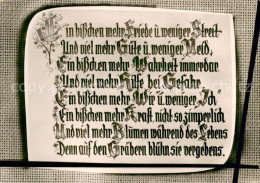 Ein bißchen mehr Friede u. weniger Streit
Und viel mehr Güte u. weniger Neid.
Ein bißchen mehr Wahrheit immerdar
Und viel mehr Hilfe bei Gefahr
Ein bißchen mehr „Wir" u. weniger „Ich"
Ein bißchen mehr Kraft, nicht so zimperlich
Und viel mehr Blumen während des Lebens
Denn auf den Gräbern blühn sie vergebens.